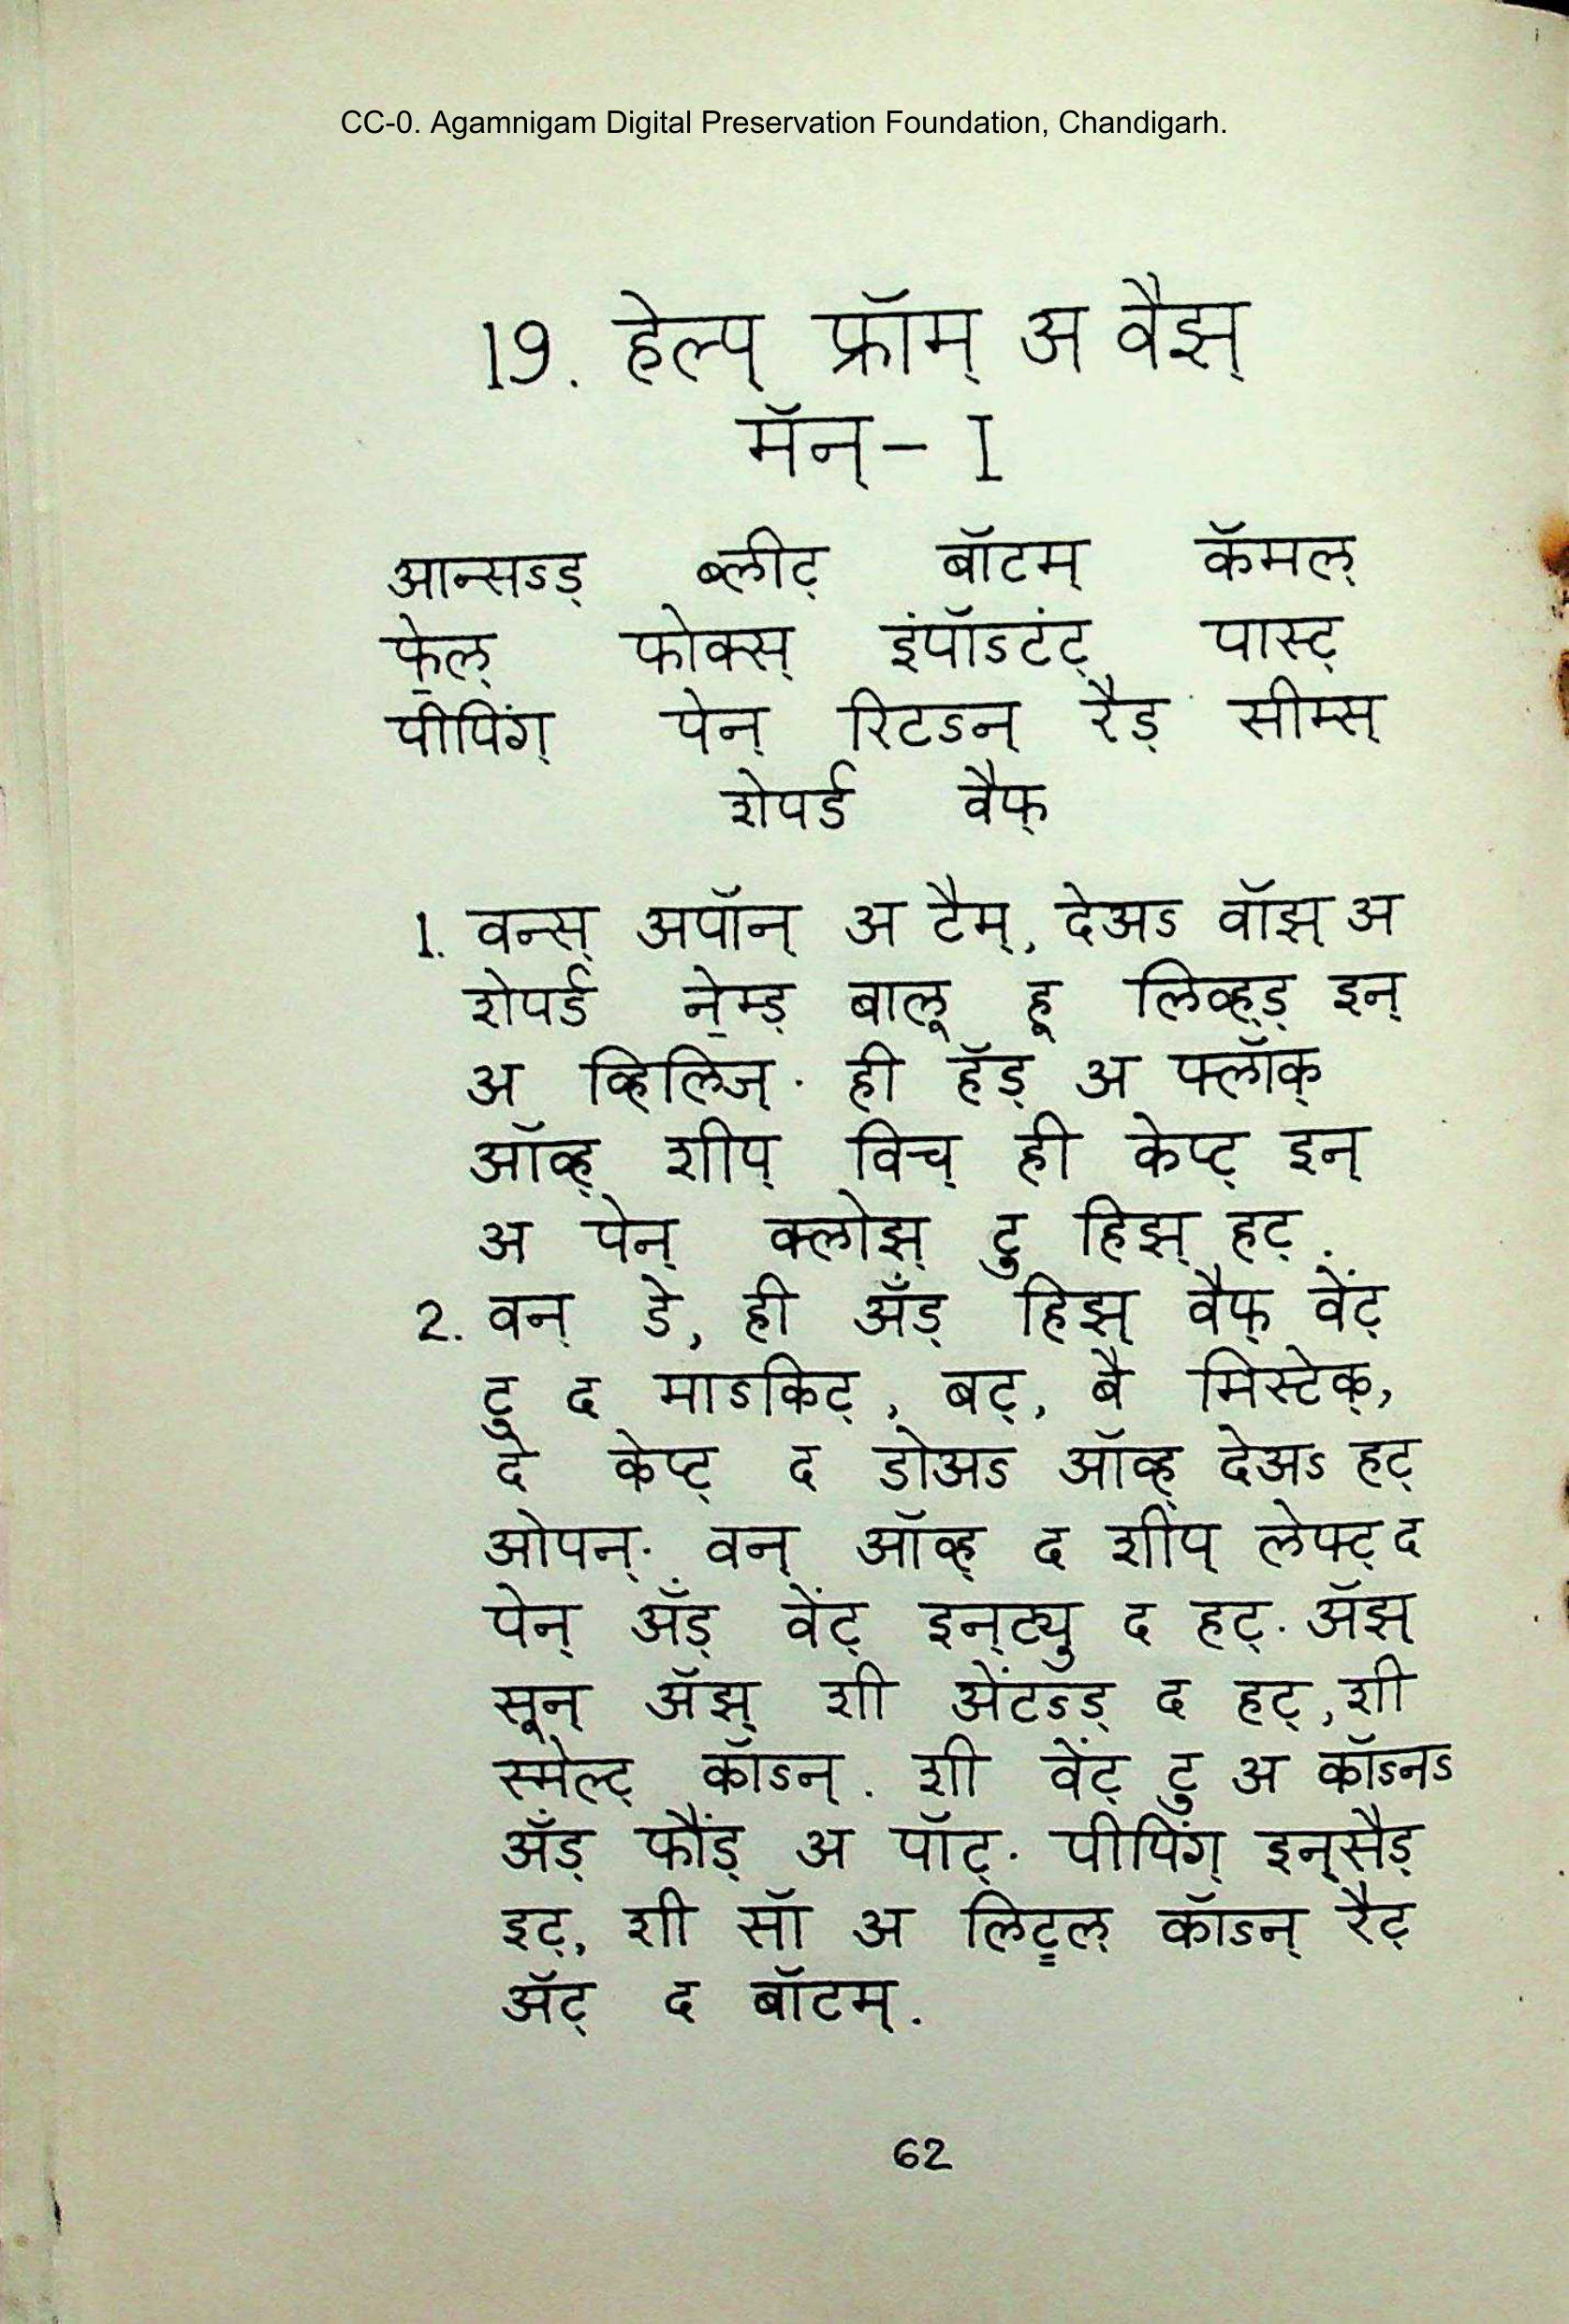 CC-0. Agamnigam Digital Preservation Foundation, Chandigarh.
19. हेल्प् फ्रॉम् अ वैझ्
मॅन् - I
आन्सऽड् ब्लीट् बॉटम् कॅमल्
फे॒ल् फोक्स् इंपॉऽटंट् पास्ट्
पीपिंग् पेन् रिटऽन् रैड् सीम्स्
शेपर्ड वैफ्
1. वन्स् अपॉन् अ टैम्, देअऽ वॉझ् अ
शेपर्ड ने॒म्ड् बालू हू लिव्ह्ड् इन्
अ व्हिलिज्. ही हॅड् अ फ्लॉक्
ऑव्ह् शीप् विच् ही केप्ट् इन्
अ पेन् क्लोझ् टु हिझ् हट्.
2. वन् डे, ही अँड् हिझ् वैफ् वेंट्
टु द माऽकिट्, बट्, बै मिस्टेक्,
दे केप्ट् द डोअऽ ऑव्ह् देअऽ हट्
ओपन्. वन् ऑव्ह् द शीप् लेफ्ट् द
पेन् अँड् वेंट् इन्ट्यु द हट्. अ‍ॅझ्
सून् अ‍ॅझ् शी अेंटऽड् द हट्, शी
स्मेल्ट् कॉऽन्. शी वेंट् टु अ कॉऽनऽ
अँड् फौंड् अ पॉट्. पीपिंग् इन्सैड्
इट्, शी सॉ अ लिट्ल् कॉऽन् रैट्
अ‍ॅट् द बॉटम्.
62